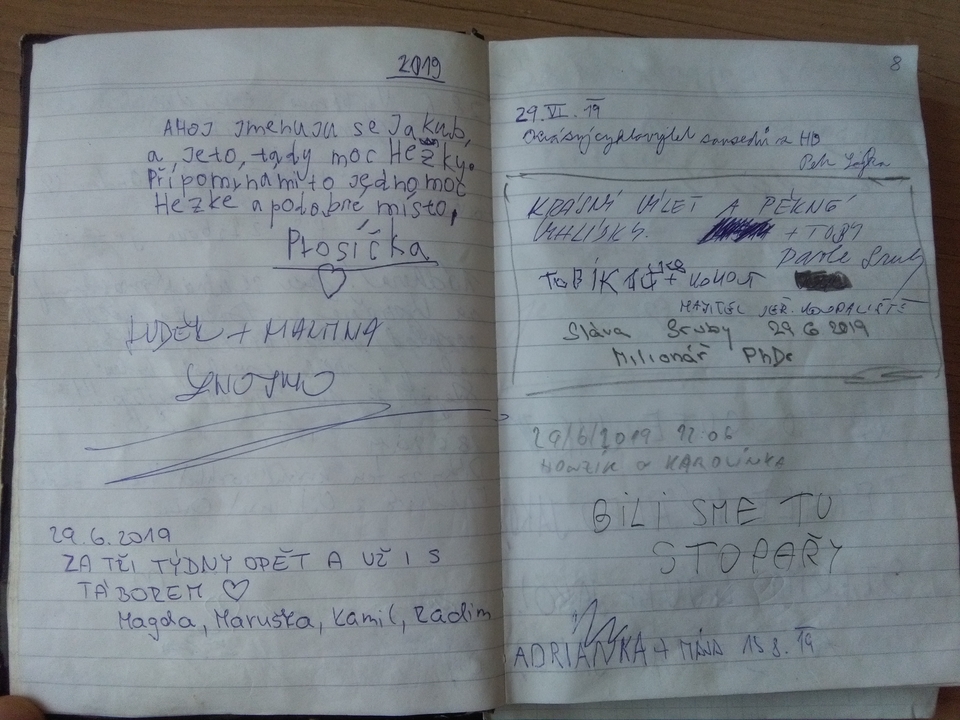 2019
AHOJ jmenuju se Jakub,
a, jeto, tady moc Hezky.
Připomínámi to jednomoc
Hezke a podobné místo,
Prosíčka
LUDĚK + MARTINA
ZNOJMO
29.6.2019
ZA TŘI TÝDNY OPĚT A UŽ I S
TÁBOREM ♡
Magda, Maruška, Kamil, Radim
8
29.VI.19
KRÁSNÍ VÍLET A PĚKNÉ
+ TOBY
MAJITEL KOUPALIŠTĚ
Sláva Sruby 29 6 2019
Milionář PhDr
29/6/2019
HONZÍK a KAROLÍNKA
BILI SME TU
STOPAŘY
ADRIANKA + MÁJA 15 8. 19